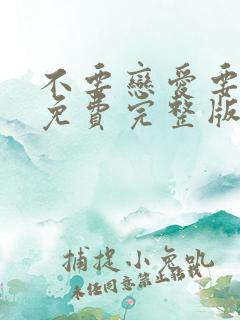 不要戀愛要
免費完整版
捕捉小兔吼
未经同意禁止转载